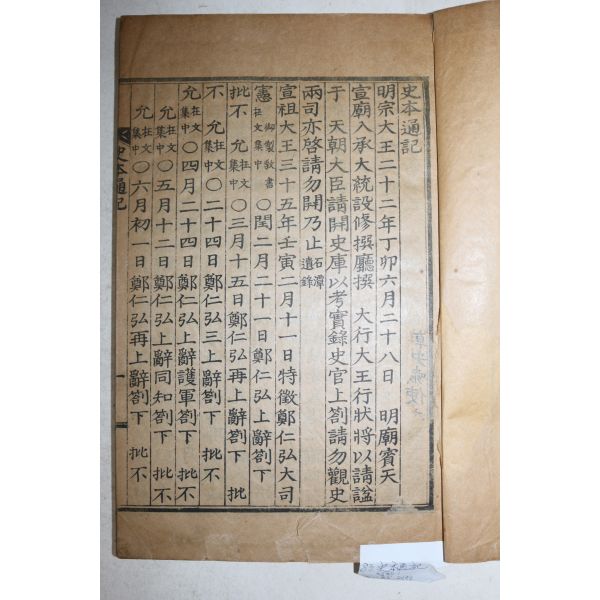 史本通記
明宗大王二十二年丁卯六月二十八日 明廟賓天
宣廟入承大統設修撰廳撰 大行大王行狀將以請諡
于 天朝大臣請開史庫以考實錄史官上劄請勿觀史
兩司亦啓請勿開乃止石潭遺錄
宣祖大王三十五年壬寅二月十一日特徵鄭仁弘大司
憲御製敎書在文集中〇閏二月二十一日鄭仁弘上辭劄下
批不 允在文集中〇三月十五日鄭仁弘再上辭劄下 批
不 允在文集中〇二十四日鄭仁弘三上辭劄下 批不
允在文集中〇四月二十四日鄭仁弘上辭護軍劄下 批不
允在文集中〇五月十二日鄭仁弘上辭同知劄下 批不
允在文集中〇六月初一日鄭仁弘再上辭劄下 批不
史本通記 一